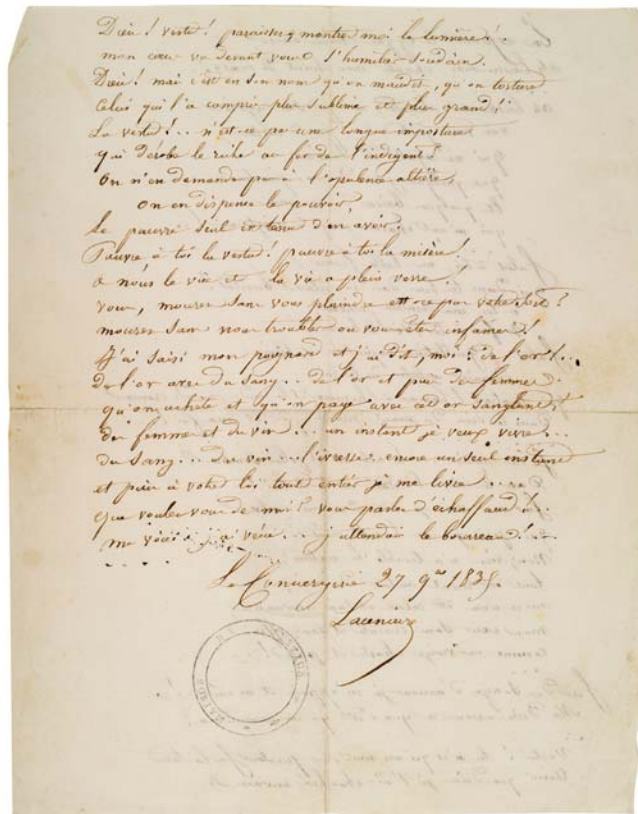 Dieu! vertu! paraissez, montrez moi la lumière!..
mon cœur va devant vous s'humilier soudain.
Dieu! mais c'est en son nom qu'on maudit, qu'on torture
Celui qui l'a compris plus sublime et plus grand!
La vertu!.. n'est-ce pas une longue imposture
qui dérobe le riche au fer de l'indigent?
On n'en demande pas à l'opulence altière,
on en dispense le pouvoir,
Le pauvre seul est tenu d'en avoir.
Pauvre à toi la vertu! pauvre à toi la misère!
a nous le vice et la vie a plein verre!
vous, mourez sans vous plaindre est-ce pas votre sort?
mourez sans nous troubler ou vous êtes infames!
J'ai saisi mon poignard et j'ai dit, moi: de l'or!...
de l'or avec du sang.. de l'or et puis des femmes
qu'on achète et qu'on paye avec cet or sanglant,
des femmes et du vin... un instant je veux vivre...
du sang... du vin... l'ivresse.. encore un seul instant
et puis à votre loi tout entier je me livre...
que voulez vous de moi? vous parlez d'échaffaud!..
me voici.. j'ai vécu... j'attendais le bourreau!..
La Conciergerie 27 9bre 1835.
Lacenaire
MAISON